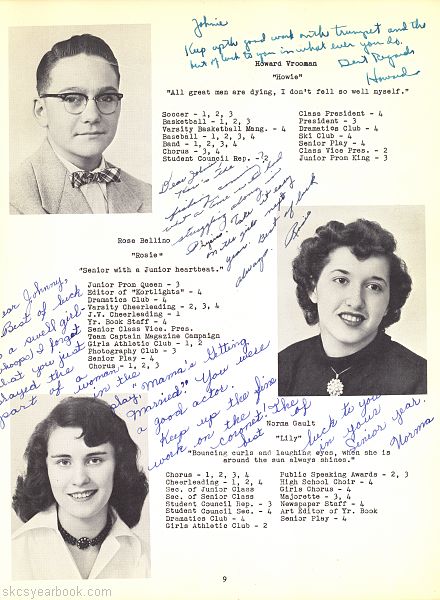 Johnie
Keep up the good work with trumpet and the
best of luck to you in what ever you do.
Best Regards
Howard
Howard Vrooman
"Howie"
"All great men are dying, I don't fell so well myself."
Soccer - 1, 2, 3
Basketball - 1, 2, 3
Varsity Basketball Mang. - 4
Baseball - 1, 2, 3, 4
Band - 1, 2, 3, 4
Chorus - 3, 4
Student Council Rep. - 2
Class President - 4
President - 3
Dramatics Club - 4
Ski Club - 4
Senior Play - 4
Class Vice Pres. - 2
Junior Prom King - 3
Dear John,
struggling along
Take it easy
on the girls next
year. Best of luck
always.
Rosie
Rose Bellino
"Rosie"
"Senior with a Junior heartbeat."
Junior Prom Queen - 3
Editor of "Kortlights" - 4
Dramatics Club - 4
Varsity Cheerleading - 2, 3, 4
J.V. Cheerleading - 1
Yr. Book Staff - 4
Senior Class Vice. Pres.
Team Captain Magazine Campaign
Girls Athletic Club - 1, 2
Photography Club - 3
Senior Play - 4
Chorus - 1, 2, 3
ear Johnny,
Best of luck
o a swell girl
whoops) I forgot
that you just
played the
part of a woman in the
play, "Mama's Getting
Married." You were
a good actor.
Keep up the fine
work on the coronet! The
best luck to you
in your
Senior year.
Norma
Norma Gault
"Lily"
"Bouncing curls and laughing eyes, when she is
around the sun always shines."
Chorus - 1, 2, 3, 4
Cheerleading - 1, 2, 4
Sec. of Junior Class
Sec. of Senior Class
Student Council Rep. - 3
Student Council Sec. - 4
Dramatics Club - 4
Girls Athletic Club - 2
Public Speaking Awards - 2, 3
High School Choir - 4
Girls Chorus - 4
Majorette - 3, 4
Newspaper Staff - 4
Art Editor of Yr. Book
Senior Play - 4
9
skcsyearbook.com